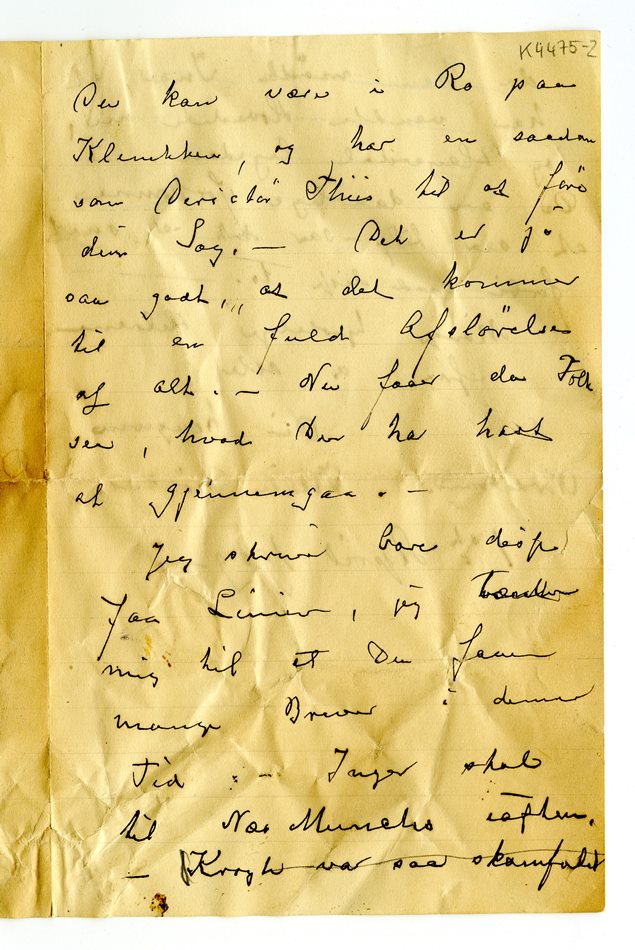 K4475-2
Du kan være i Ro paa
Klinikken, og har en saadan
som Director Thiis til at føre
din Sag. — Det er jo
saa godt, at det kommer
til en fuld Afsløvelse
af alt. — Nu faaer da Folk
see, hvad Du har havt
at gjennemgaa. —
Jeg skriver bare disse
faa Linier, jeg tænker
mig til at Du faaer
mange Breve i denne
Tid. — Inger skal
til Munchs iaften.
— Krogh var saa skamfuld